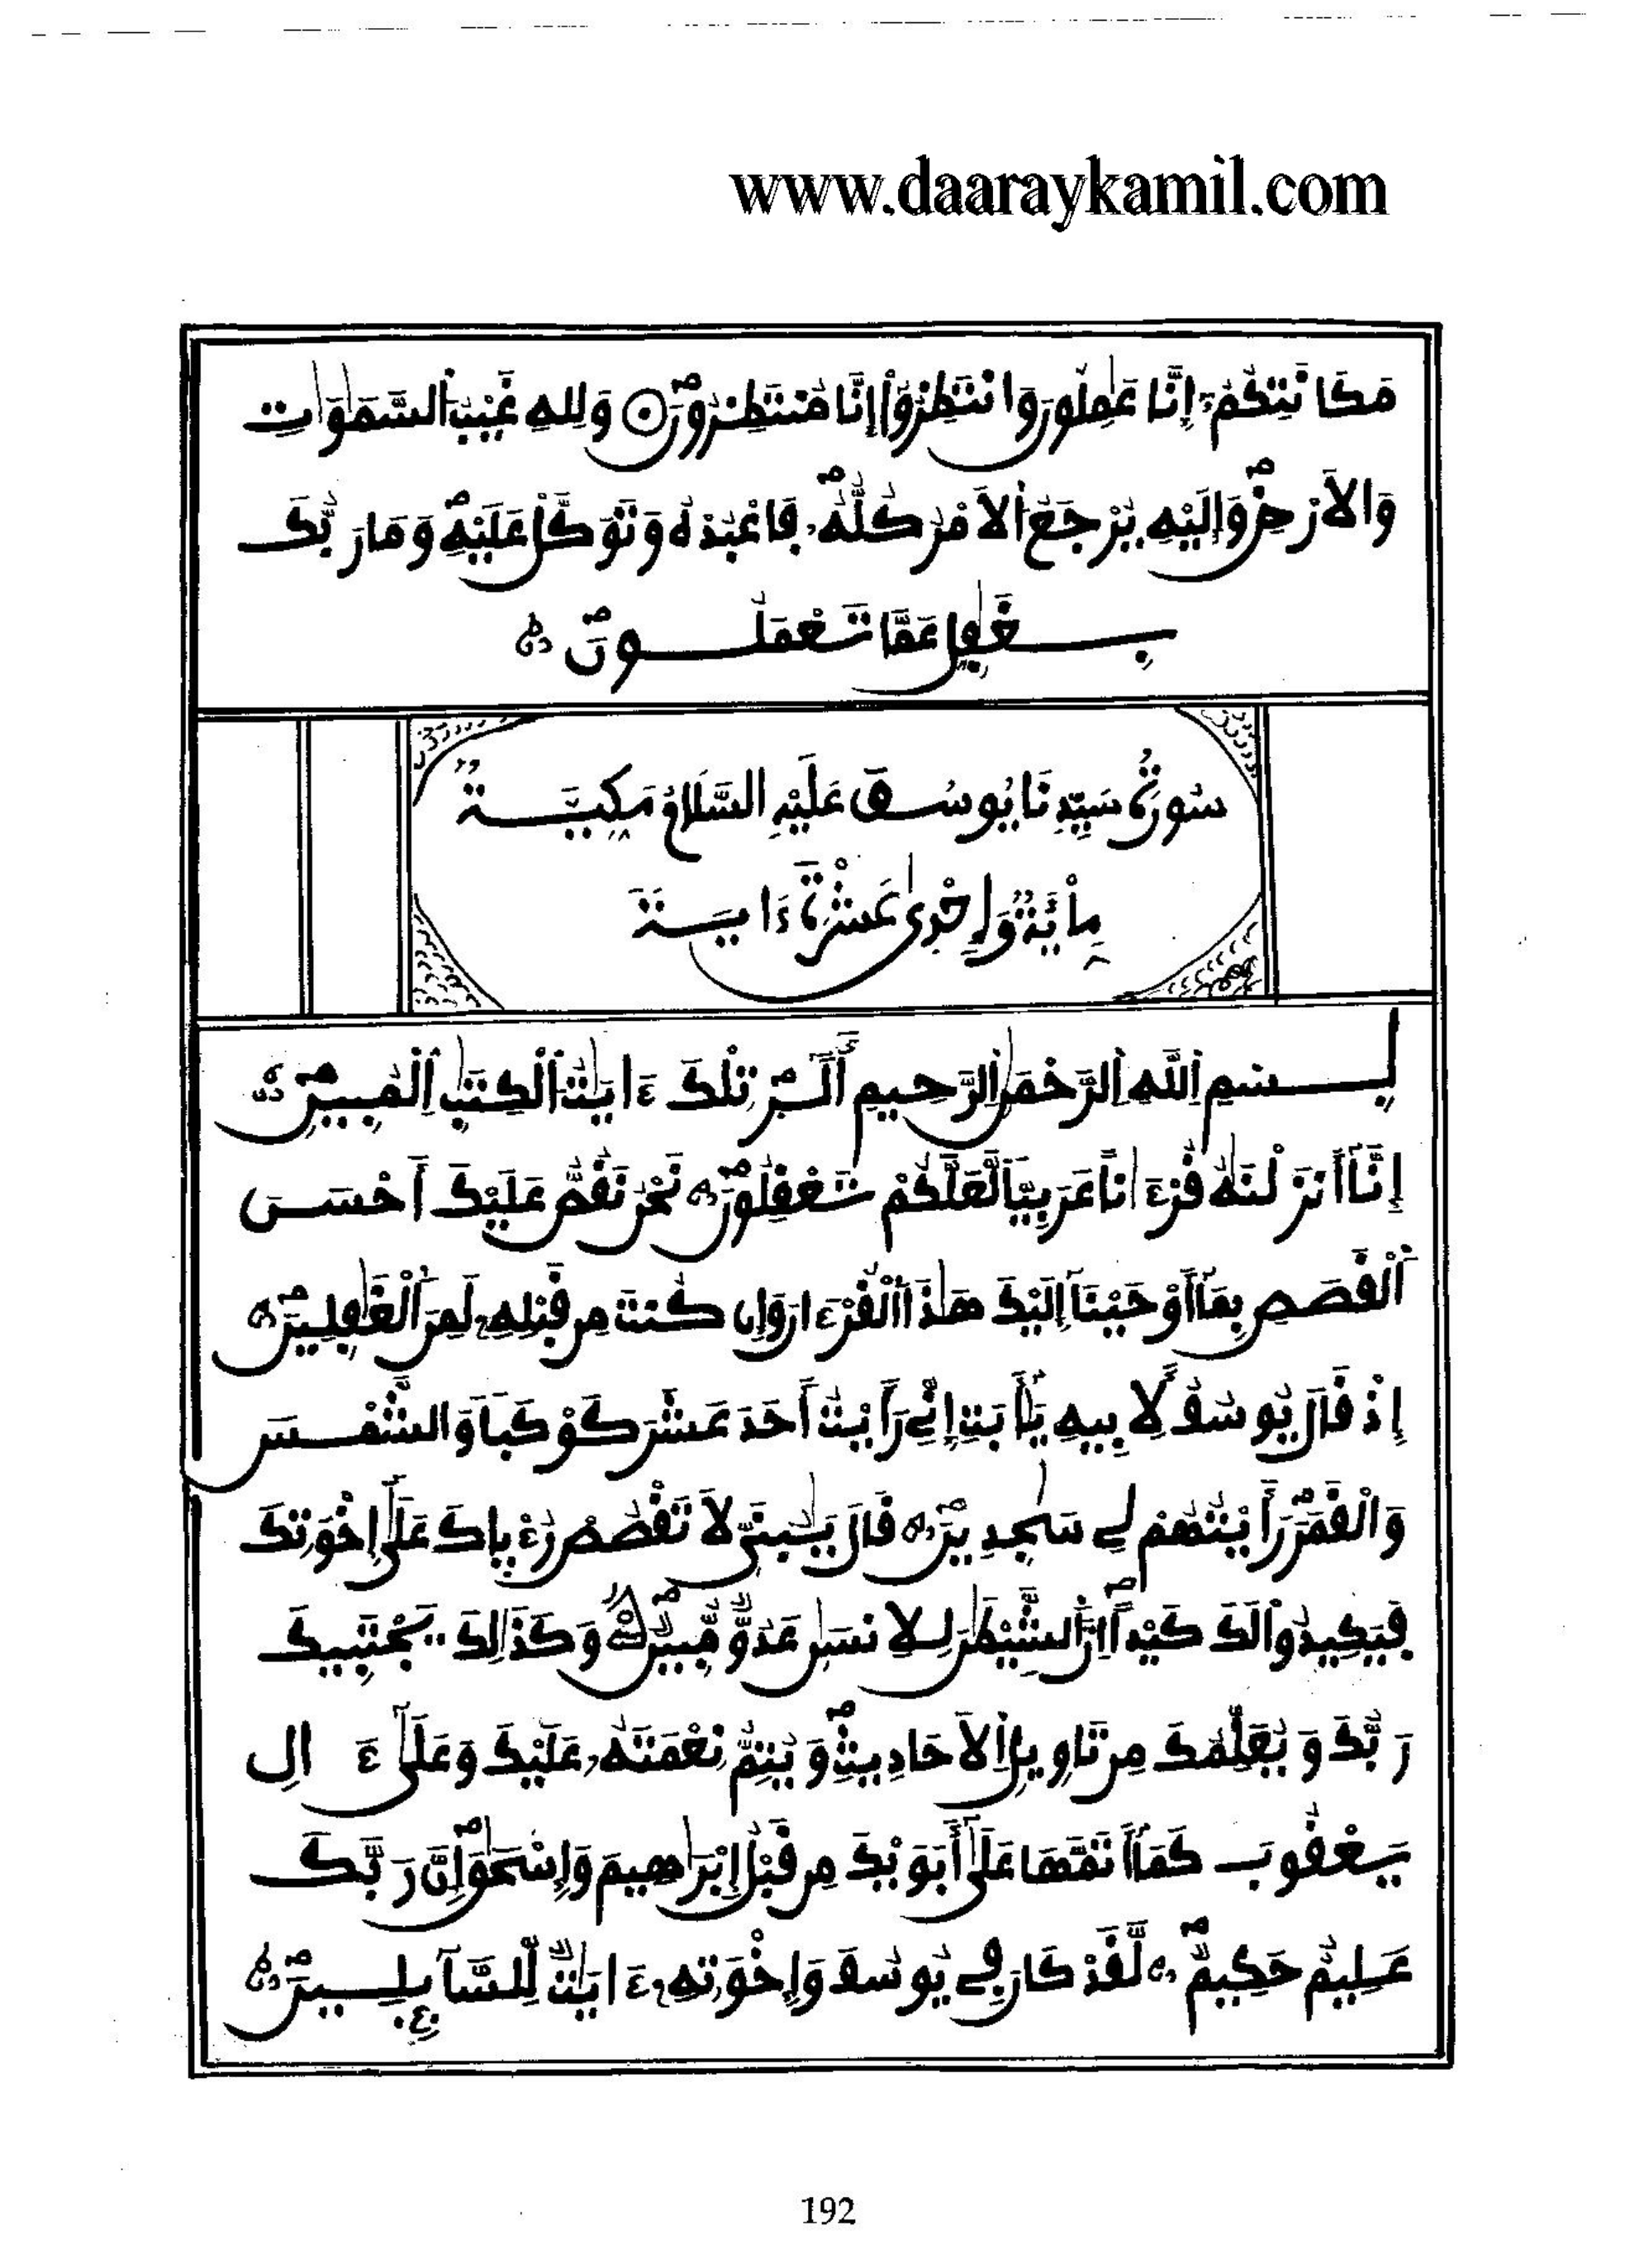 www.daaraykamil.com
مَكَانَتِكُمُۥ إِنَّا عَٰمِلُونَ وَانتَظِرُوٓاْ إِنَّا مُنتَظِرُونَ ۝ وَلِلهِ غَيْبُ اُلسَّمَٰوَٰتِ
وَالَارْضِ وَإِلَيْهِ يَرْجِعُ اُلَامْرُ كُلُّهُۥ فَاعْبُدْهُ وَتَوَكَّلْ عَلَيْهِ وَمَا رَبُّكَ
بِغَٰفِلٍ عَمَّا تَعْمَلُونَ
سُورَةُ سَيِّدِنَا يُوسُفَ عَلَيْهِ السَّلَامُ مَكِيَّةٌ
مِاْئَةٌ وَإِحْدَىٰ عَشْرَةَ ءَايَةً
بِسْمِ اِللَّهِ اِلرَّحْمَٰنِ اِلرَّحِيمِ أَلَٓرٰ تِلْكَ ءَايَٰتُ اُلْكِتَٰبِ اِلْمُبِينِ
إِنَّآ أَنزَلْنَٰهُ قُرْءَاناً عَرَبِيّاً لَّعَلَّكُمْ تَعْقِلُونَ نَحْنُ نَقُصُّ عَلَيْكَ أَحْسَنَ
اَلْقَصَصِ بِمَآ أَوْحَيْنَآ إِلَيْكَ هَٰذَا اَلْقُرْءَانَ وَإِن كُنتَ مِن قَبْلِهِۦ لَمِنَ اَلْغَٰفِلِينَ
إِذْ قَالَ يُوسُفُ لِأَبِيهِ يَٰٓأَبَتِ إِنِّے رَأَيْتُ أَحَدَ عَشَرَ كَوْكَباً وَالشَّمْسَ
وَالْقَمَرَ رَأَيْتُهُمْ لِے سَٰجِدِينَ قَالَ يَٰبُنَيِّ لَا تَقْصُصْ رُءْيٰاكَ عَلَىٰٓ إِخْوَتِكَ
فَيَكِيدُواْ لَكَ كَيْداً اِنَّ اَلشَّيْطَٰنَ لِلِانسَٰنِ عَدُوٌّ مُّبِينٌ وَكَذَٰلِكَ يَجْتَبِيكَ
رَبُّكَ وَيُعَلِّمُكَ مِن تَاوِيلِ اِلَاحَادِيثِ وَيُتِمُّ نِعْمَتَهُۥ عَلَيْكَ وَعَلَىٰٓ ءَالِ
يَعْقُوبَ كَمَآ أَتَمَّهَا عَلَىٰٓ أَبَوَيْكَ مِن قَبْلُ إِبْرَٰهِيمَ وَإِسْحَٰقَ إِنَّ رَبَّكَ
عَلِيمٌ حَكِيمٌ لَّقَدْ كَانَ فِے يُوسُفَ وَإِخْوَتِهِۦٓ ءَايَٰتٌ لِّلسَّآئِلِينَ
192